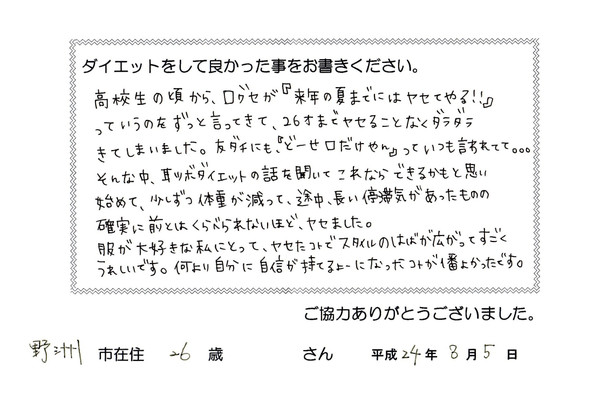 ダイエットをして良かった事をお書きください。
高校生の頃から、口グセが『来年の夏までにはヤセてやる!!』
っていうのをずっと言ってきて、26才までヤセることなくダラダラ
きてしまいました。友ダチにも、『どーせ口だけやん』っていつも言われてて。。。
そんな中、耳ツボダイエットの話を聞いてこれならできるかもと思い
始めて、少しずつ体重が減って、途中、長い停滞気があったものの
確実に前とはくらべられないほど、ヤセました。
服が大好きな私にとって、ヤセたコトでスタイルのはばが広がってすごく
うれしいです。何より自分に自信が持てるよーになったコトが1番よかったです。
ご協力ありがとうございました。
野洲 市在住 26 歳 さん 平成 24 年 8 月 5 日